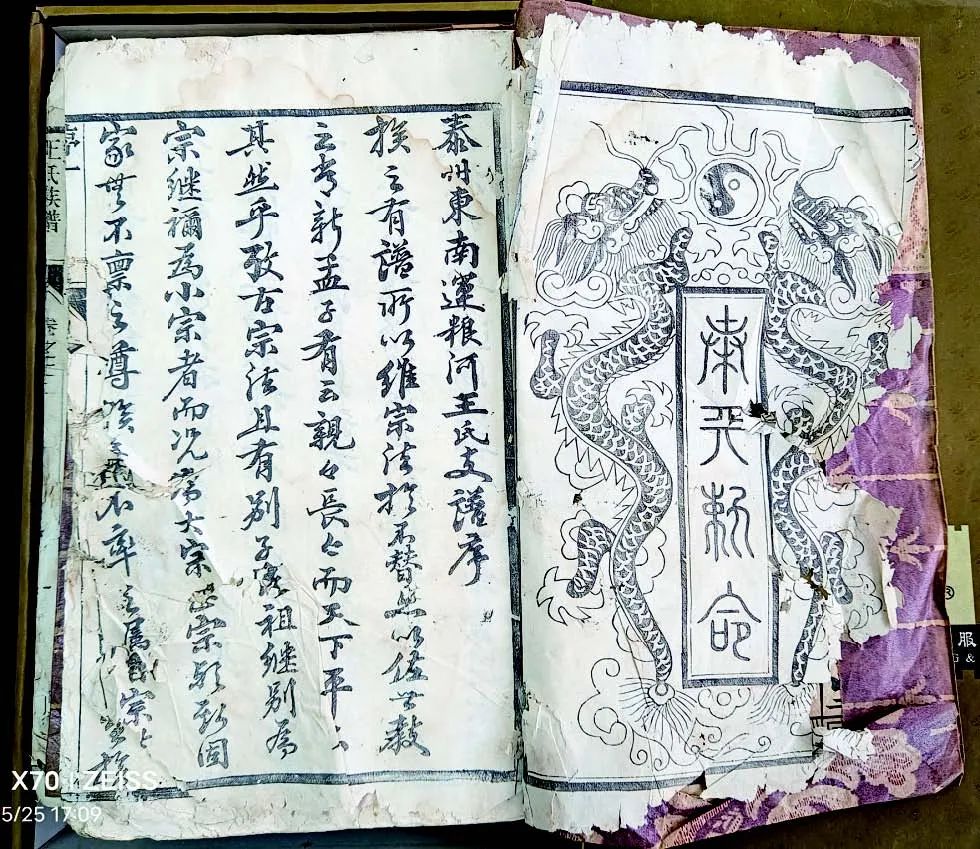 奉天敕命
泰州東南運粮河王氏支譜序
族之有譜所以維宗法於不替然以佐世教
之新孟子有云親々長々而天下平
其然乎攷古宗法且有別子為祖繼別為
宗繼禰為小宗者而况大宗宗固
家世不禀之尊不率之属宗
王氏族譜
X70 | ZEISS
5/25 17:09
服